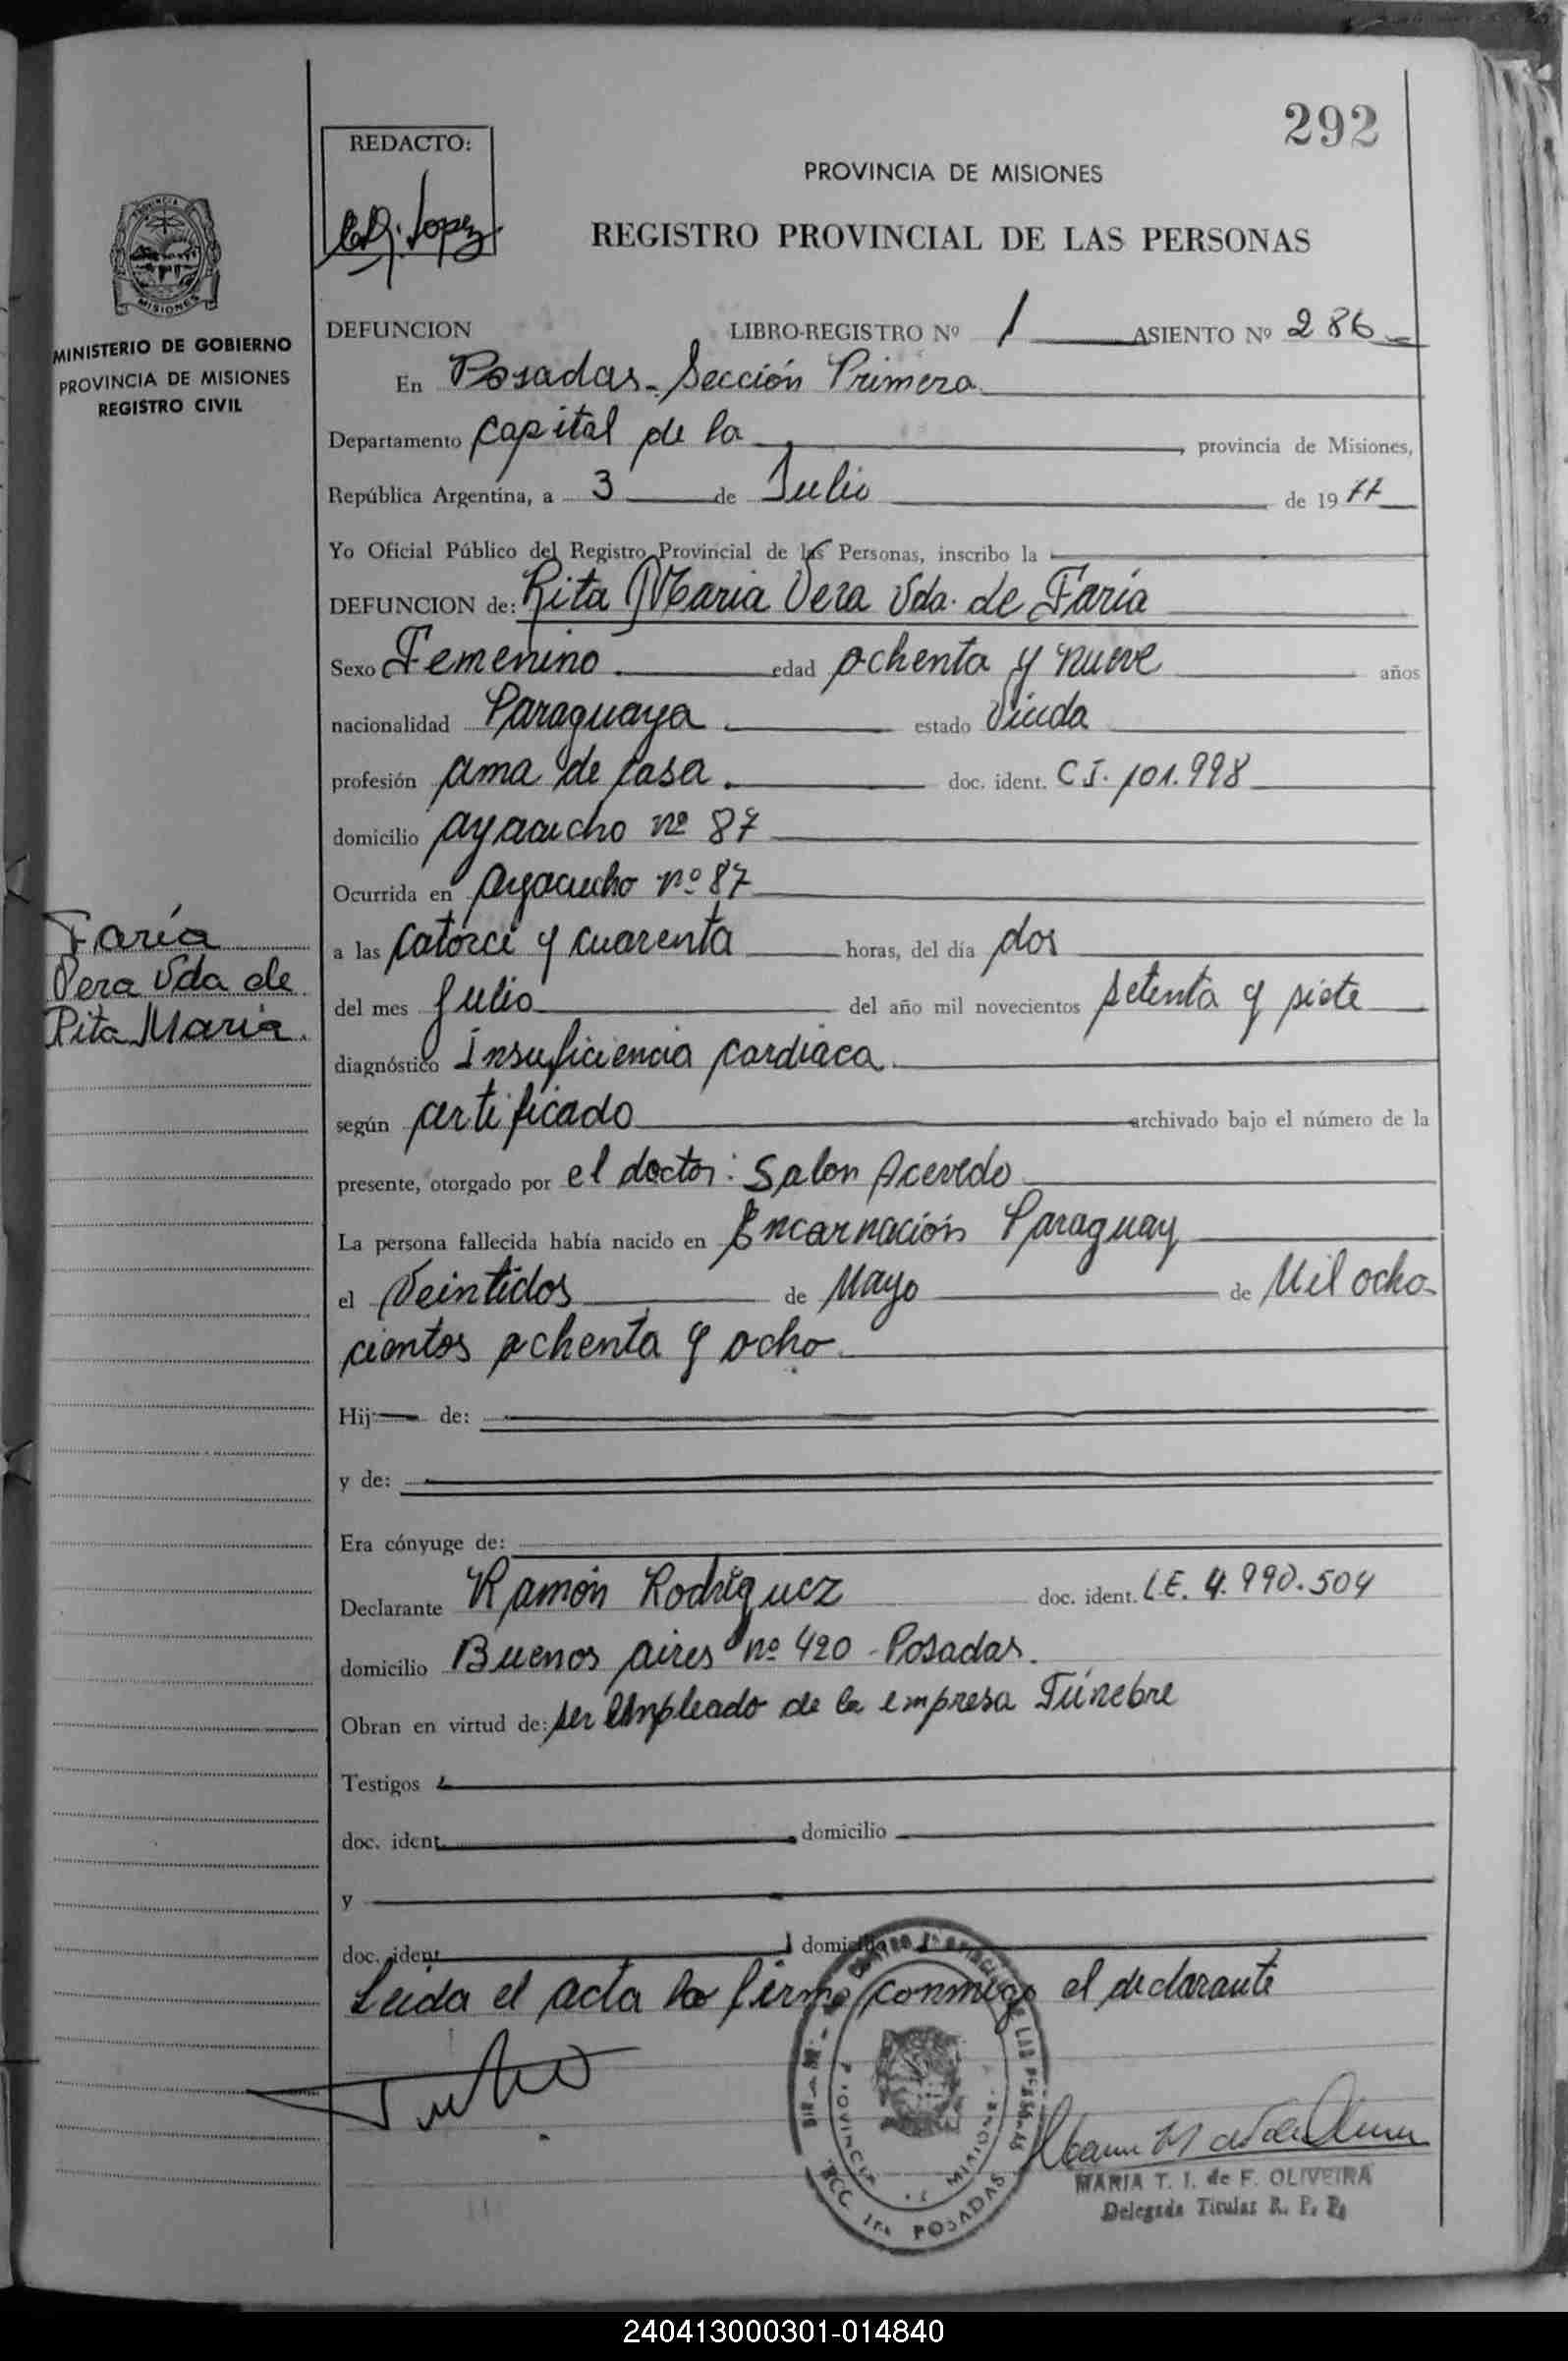 292
REDACTO:
Lopez
PROVINCIA DE MISIONES
REGISTRO PROVINCIAL DE LAS PERSONAS
MISIONES
MINISTERIO DE GOBIERNO
PROVINCIA DE MISIONES
REGISTRO CIVIL
DEFUNCION LIBRO-REGISTRO Nº 1 ASIENTO Nº 286
En Posadas - Sección Primera
Departamento Capital de la , provincia de Misiones,
República Argentina, a 3 de Julio de 1977
Yo Oficial Público del Registro Provincial de las Personas, inscribo la
DEFUNCION de: Rita Maria Vera Vda. de Faría
Sexo Femenino edad ochenta y nueve años
nacionalidad Paraguaya estado Viuda
profesión ama de casa. doc. ident. C.I. 101.998
domicilio Ayacucho nº 87
Ocurrida en Ayacucho nº 87
a las catorce y cuarenta horas, del día dos
del mes Julio del año mil novecientos setenta y siete
diagnóstico Insuficiencia cardiaca
según certificado archivado bajo el número de la
presente, otorgado por el doctor: Salon Acevedo
La persona fallecida había nacido en Encarnación Paraguay
el Veintidos de Mayo de Mil ocho-
cientos ochenta y ocho
Hij de:
y de:
Era cónyuge de:
Declarante Ramón Rodriguez doc. ident. L.E. 4.990.504
domicilio Buenos aires nº 420 - Posadas.
Obran en virtud de: ser empleado de la empresa Fúnebre
Testigos
doc. ident. domicilio
y
doc. ident domicilio
Leida el acta la firma conmigo el declarante
Faría
Vera Vda de
Rita Maria.
PROVINCIA MISIONES
SECC. 1ra POSADAS
MARIA T. I. de F. OLIVEIRA
Delegada Titular R. P. P.
240413000301-014840